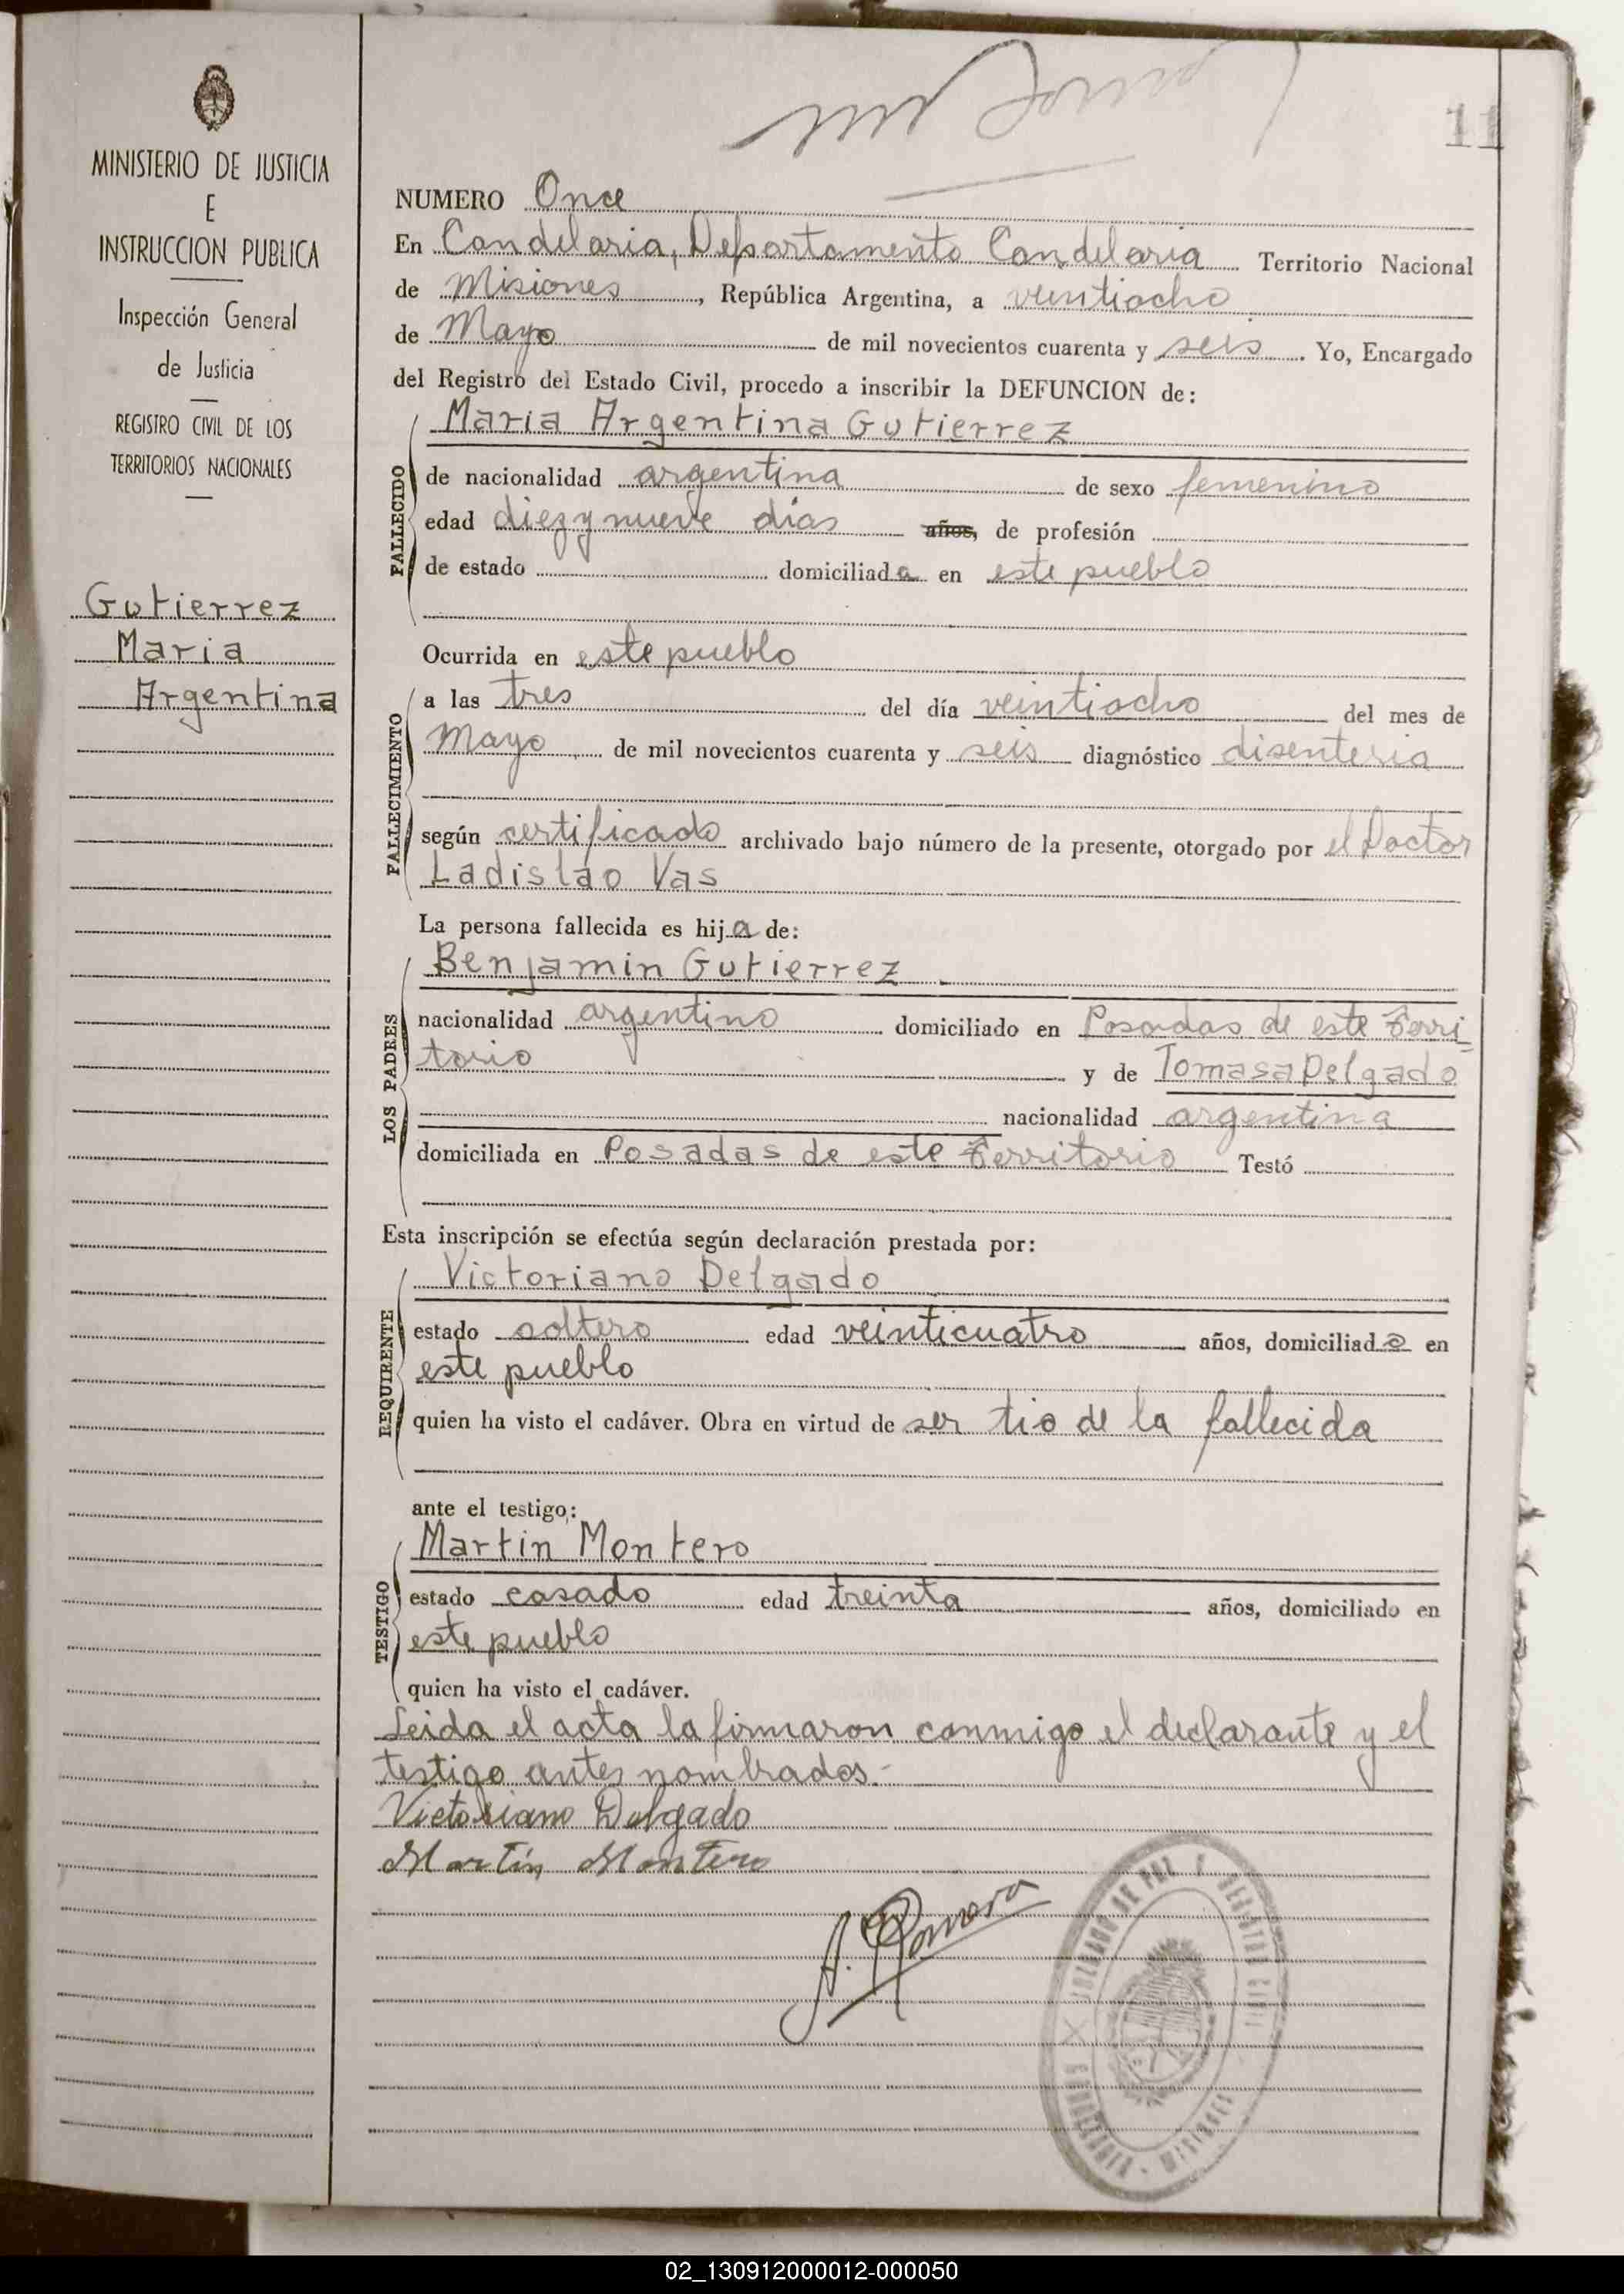 11
MINISTERIO DE JUSTICIA
E
INSTRUCCION PUBLICA
Inspección General
de Justicia
REGISTRO CIVIL DE LOS
TERRITORIOS NACIONALES
Gutierrez
Maria
Argentina
NUMERO Once
En Candelaria, Departamento Candelaria Territorio Nacional
de Misiones, República Argentina, a veintiocho
de Mayo de mil novecientos cuarenta y seis. Yo, Encargado
del Registro del Estado Civil, procedo a inscribir la DEFUNCION de:
Maria Argentina Gutierrez
FALLECIDO
de nacionalidad argentina de sexo femenino
edad diez y nueve dias años, de profesión
de estado domiciliada en este pueblo
Ocurrida en este pueblo
FALLECIMIENTO
a las tres del día veintiocho del mes de
Mayo de mil novecientos cuarenta y seis diagnóstico disenteria
según certificado archivado bajo número de la presente, otorgado por el Doctor
Ladislao Vas
La persona fallecida es hija de:
LOS PADRES
Benjamin Gutierrez
nacionalidad argentino domiciliado en Posadas de este Terri
torio y de Tomasa Delgado
nacionalidad argentina
domiciliada en Posadas de este Territorio Testó
Esta inscripción se efectúa según declaración prestada por:
REQUIRENTE
Victoriano Delgado
estado soltero edad veinticuatro años, domiciliado en
este pueblo
quien ha visto el cadáver. Obra en virtud de ser tio de la fallecida
ante el testigo:
TESTIGO
Martin Montero
estado casado edad treinta años, domiciliado en
este pueblo
quien ha visto el cadáver.
Leida el acta la firmaron conmigo el declarante y el
testigo antes nombrados.-
Victoriano Delgado
Martín Montero
JUZGADO DE PAZ Y REGISTRO CIVIL
CANDELARIA - MISIONES
02_130912000012-000050